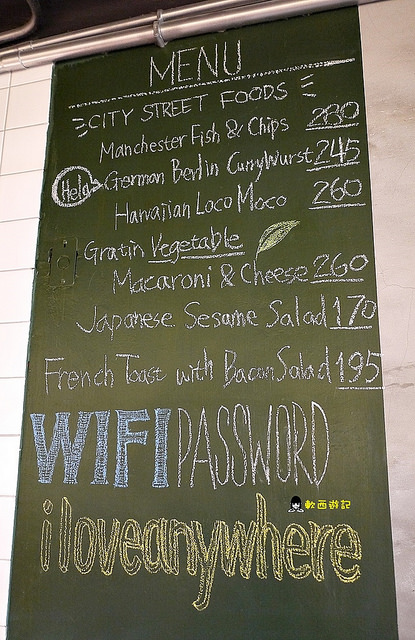 MENU
CITY STREET FOODS
Manchester Fish & Chips 280
Help German Berlin CurryWurst 245
Hawaiian Loco Moco 260
Gratin Vegetable
Macaroni & Cheese 260
Japanese Sesame Salad 170
French Toast with Bacon Salad 195
WIFI PASSWORD
軟西遊記
iloveanywhere